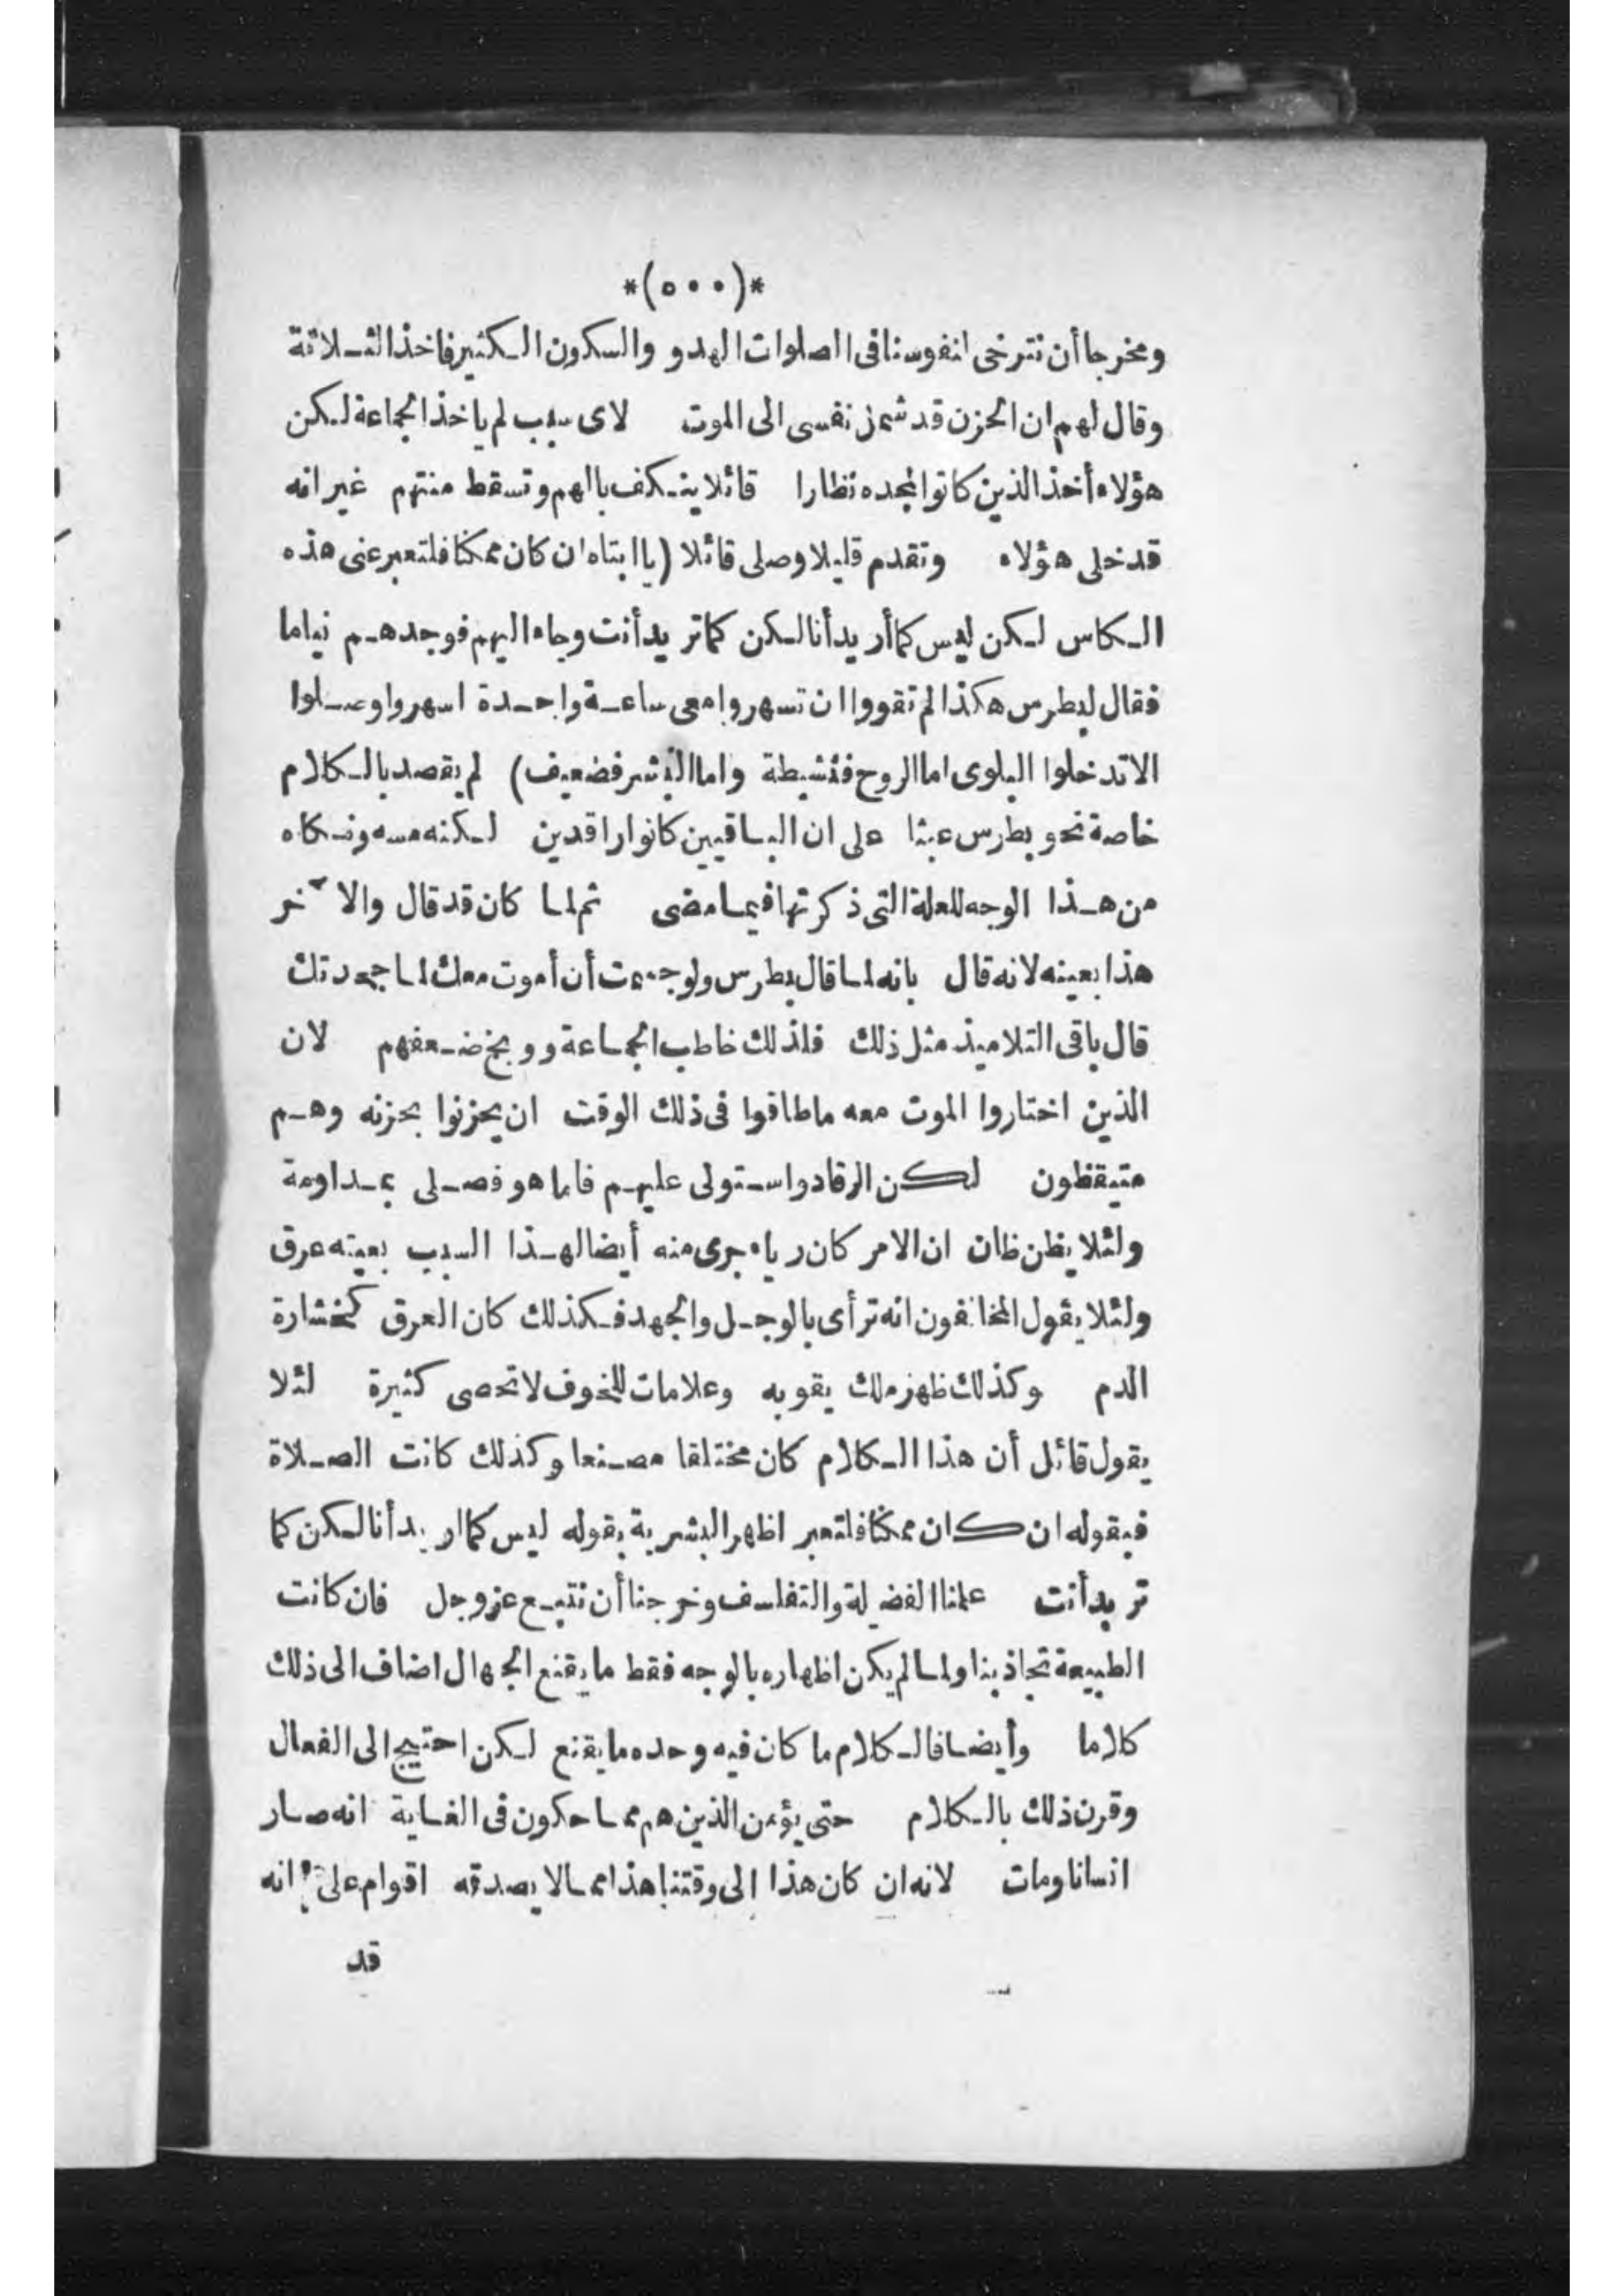 *(٥٠٠)*
ومخرجا أن نترخى انفوسنا فى الصلوات الهدو والسكون الكثير فاخذ الثلاثة
وقال لهم ان الحزن قد شمل نفسى الى الموت لاى سبب لم ياخذ الجماعة لكن
هؤلاء أخذ الذين كانوا لمجده نظارا قائلا ينكف بالهم وتسقط منتهم غير انه
قد خلى هؤلاء وتقدم قليلا وصلى قائلا (يا ابتاه ان كان ممكنا فلتعبر عنى هذه
الكاس لكن ليس كما أريد أنا لكن كما تريد أنت وجاء اليهم فوجدهم نياما
فقال لبطرس هكذا لم تقووا ان تسهروا معى ساعة واحدة اسهروا وصلوا
الا تدخلوا البلوى اما الروح فنشيطة واما البشر فضعيف) لم يقصد بالكلام
خاصة نحو بطرس عبثا على ان الباقيين كانوا راقدين لكنه مسه ونكاه
من هذا الوجه للعلة التى ذكرتها فيما مضى ثم لما كان قد قال والآخر
هذا بعينه لانه قال بانه لما قال بطرس ولو جئت أن أموت معك لما جحدتك
قال باقى التلاميذ مثل ذلك فلذلك خاطب الجماعة ووبخ ضعفهم لان
الذين اختاروا الموت معه ما طاقوا فى ذلك الوقت ان يحزنوا بحزنه وهم
متيقظون لكن الرقاد واستولى عليهم فاما هو فصلى بمداومة
ولئلا يظن ظان ان الامر كان رياء جرى منه أيضا لهذا السبب بعينه عرق
ولئلا يقول المخالفون انه ترأى بالوجل والجهد فكذلك كان العرق كخشارة
الدم وكذلك ظهر ملك يقويه وعلامات للخوف لا تحصى كثيرة لئلا
يقول قائل أن هذا الكلام كان مختلقا مصنعا وكذلك كانت الصلاة
فبقوله ان كان ممكنا فلتعبر اظهر البشرية بقوله ليس كما اريد أنا لكن كما
تريد أنت علمنا الفضيلة والتفلسف وخرجنا أن نتبع عز وجل فان كانت
الطبيعة تجاذبنا ولما لم يكن اظهاره بالوجه فقط ما يقنع الجهال اضاف الى ذلك
كلاما وأيضا فالكلام ما كان فيه وحده ما يقنع لكن احتيج الى الفعال
وقرن ذلك بالكلام حتى يؤمن الذين هم مماحكون فى الغاية انه صار
انسانا ومات لانه ان كان هذا الى وقتنا هذا مما لا يصدقه اقوام على انه
قد